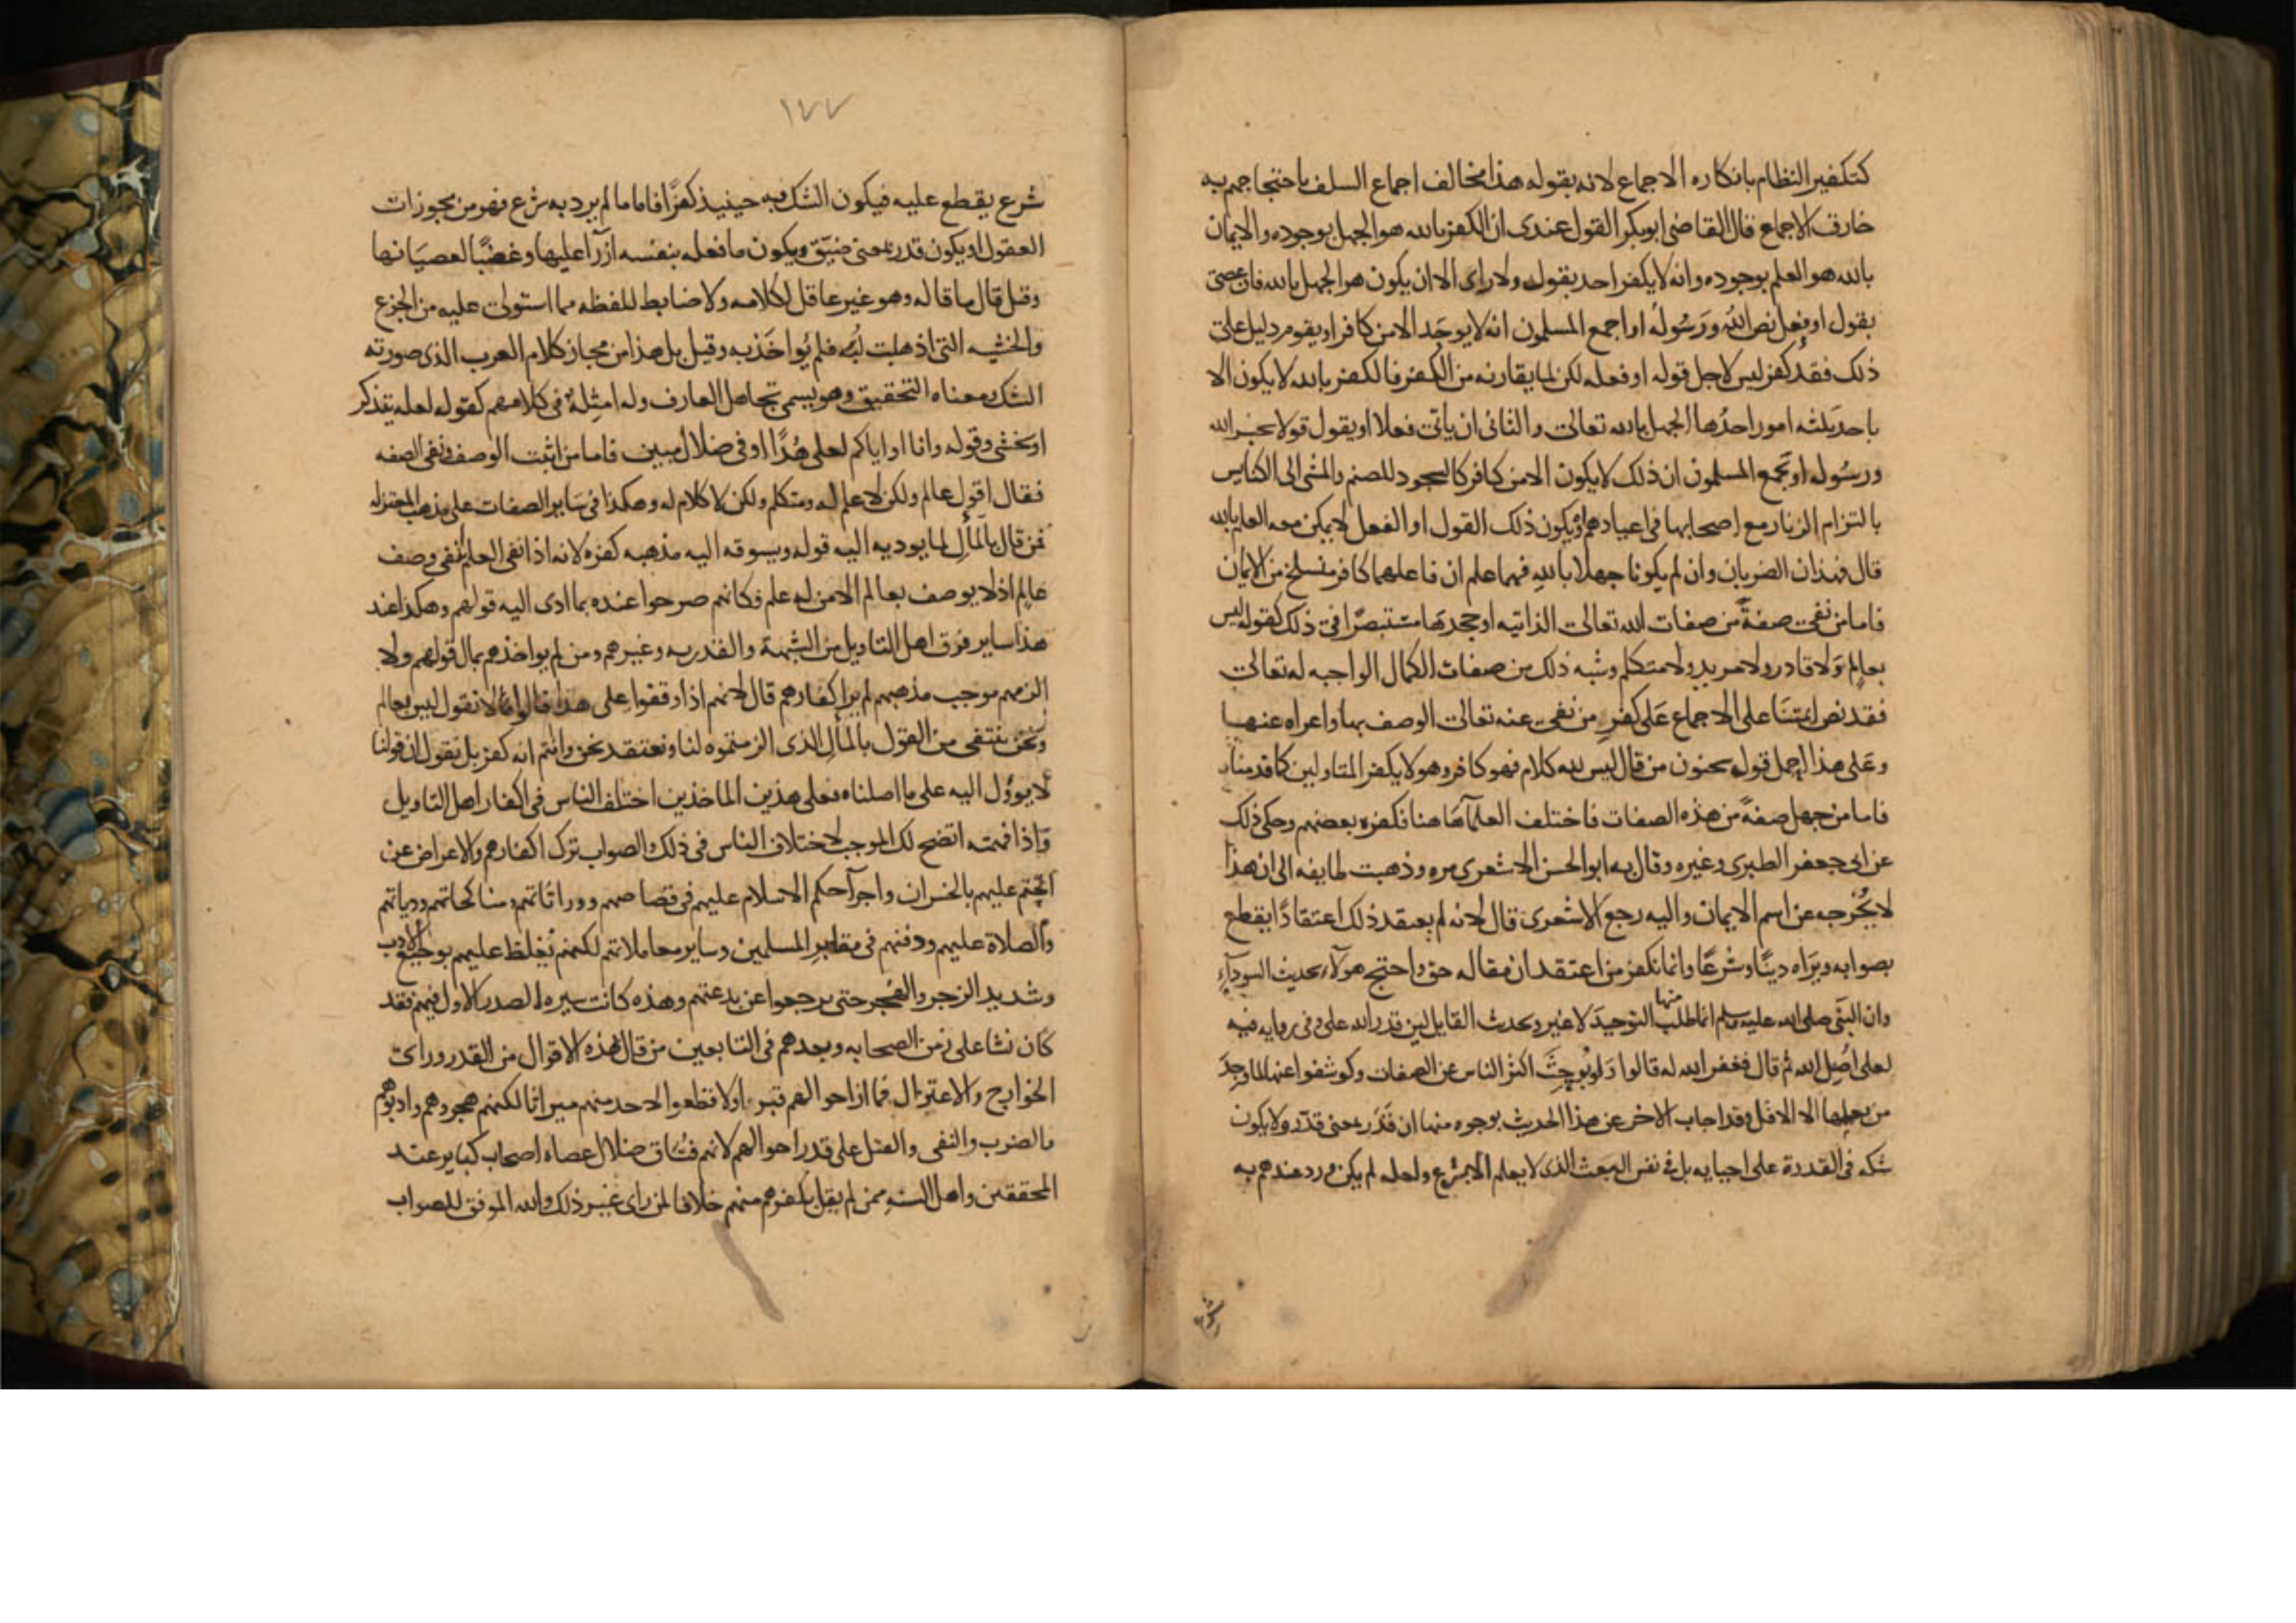 كتكفير النظام بانكاره الاجماع لانه بقوله هذا مخالف اجماع السلف باحتجاجهم به
خارق الاجماع قال القاضى ابوبكر القول عندى ان الكفر بالله هو الجهل بوجوده والايمان
بالله هو العلم بوجوده وانه لا يكفر احد بقول ولا راى الا ان يكون هو الجهل بالله فان عصى
بقول او فعل نص الله ورسوله او اجمع المسلمون انه لا يوجد الا من كافر او يقوم دليل على
ذلك فقد كفر ليس لاجل قوله او فعله لكن لما يقارنه من الكفر فالكفر بالله لا يكون الا
باحد ثلثه امور احدها الجهل بالله تعالى والثانى ان ياتى فعلا او يقول قولا يخبر الله
ورسوله او تجمع المسلمون ان ذلك لا يكون الا من كافر كالسجود للصنم والمشى الى الكنايس
بالتزام الزنار مع اصحابها فى اعيادهم او يكون ذلك القول او الفعل لا يمكن معه العلم بالله
قال فهذان الضربان وان لم يكونا جهلا بالله فهما علم ان فاعلهما كافر منسلخ من الايمان
فاما من نفى صفة من صفات الله تعالى الذاتيه او جحدها مستبصرا فى ذلك كقوله ليس
بعالم ولا قادر ولا مريد ولا متكلم وشبه ذلك من صفات الكمال الواجبه له تعالى
فقد نص ايمتنا على الاجماع على كفر من نفى عنه تعالى الوصف بها واعراه عنها
وعلى هذا حمل قول سحنون من قال ليس لله كلام فهو كافر وهو لا يكفر المتاولين كما قدمناه
فاما من جهل صفة من هذه الصفات فاختلف العلماء هاهنا فكفره بعضهم وحكى ذلك
عن ابى جعفر الطبرى وغيره وقال به ابو الحسن الاشعرى مره وذهبت طايفه الى ان هذا
لا يخرجه عن اسم الايمان واليه رجع الاشعرى قال لانه لم يعتقد ذلك اعتقادا يقطع
بصوابه ويراه دينا وشرعا وانما نكفر من اعتقد ان مقاله حق واحتج هولاء بحديث السوداء
وان النبى صلى الله عليه وسلم انما طلب منها التوحيد لا غير وبحديث القايل لين قدر الله على وفى روايه فيه
لعلى اضل الله ثم قال فغفر الله له قالوا ولو بوحث اكثر الناس عن الصفات وكوشفوا عنها لما وجد
من يعلمها الا الاقل وقد اجاب الاخر عن هذا الحديث بوجوه منها ان قدر بمعنى قدّر ولا يكون
شكه فى القدرة على احيايه بل فى نفس البعث الذى لا يعلم الا بشرع ولعله لم يكن ورد عندهم به
شرع
١٧٧
شرع يقطع عليه فيكون الشك فيه حينيذ كفرا فاما ما لم يرد به شرع فهو من مجوزات
العقول او يكون قدر بمعنى ضيق ويكون ما فعله بنفسه ازراء عليها وغضبا لعصيانها
وقيل قال ما قاله وهو غير عاقل لكلامه ولا ضابط للفظه مما استولى عليه من الجزع
والخشيه التى اذهلت لبه فلم يواخذ به وقيل بل هذا من مجاز كلام العرب الذى صورته
الشك ومعناه التحقيق وهو يسمى تجاهل العارف وله امثلة فى كلامهم كقوله لعله يتذكر
او يخشى وقوله وانا او اياكم لعلى هدا او فى ضلال مبين فاما من اثبت الوصف ونفى الصفه
فقال اقول عالم ولكن لا علم له ومتكلم ولكن لا كلام له وهكذا فى ساير الصفات على مذهب المعتزله
فمن قال بالمآل لما يوديه اليه قوله ويسوقه اليه مذهبه كفره لانه اذا نفى العلم انتفى وصف
عالم اذ لا يوصف بعالم الا من له علم فكانهم صرحوا عنده بما ادى اليه قولهم وهكذا عند
هذا ساير فرق اهل التاويل من المشبهة والقدريه وغيرهم ومن لم يواخذهم بمال قولهم ولا
الزمهم موجب مذهبهم لم ير اكفارهم قال لانهم اذا وقفوا على هذا قالوا لا نقول ليس بعالم
ونحن ننتفى من القول بالمآل الذى الزمتموه لنا ونعتقد نحن وانتم انه كفر بل نقول ان قولنا
لا يوول اليه على ما اصلناه فعلى هذين الماخذين اختلف الناس فى اكفار اهل التاويل
واذا فهمته اتضح لك الموجب لاختلاف الناس فى ذلك والصواب ترك اكفارهم والاعراض عن
الحتم عليهم بالخسران واجراء حكم الاسلام عليهم فى قصاصهم ووراثاتهم ومناكحاتهم ودياتهم
والصلاة عليهم ودفنهم فى مقابر المسلمين وساير معاملاتهم لكنهم يغلظ عليهم بوجيع الادب
وشديد الزجر والهجر حتى يرجعوا عن بدعتهم وهذه كانت سيره الصدر الاول فيهم فقد
كان نشا على زمن الصحابه وبعدهم فى التابعين من قال بهذه الاقوال من القدر وراى
الخوارج والاعتزال فما ازاحوا لهم قبرا ولا قطعوا لاحد منهم ميراثا لكنهم هجروهم وادبوهم
بالضرب والنفى والقتل على قدر احوالهم لانهم فساق ضلال عصاه اصحاب كباير عند
المحققين واهل السنه ممن لم يقل بكفرهم منهم خلافا لمن راى غير ذلك والله الموفق للصواب